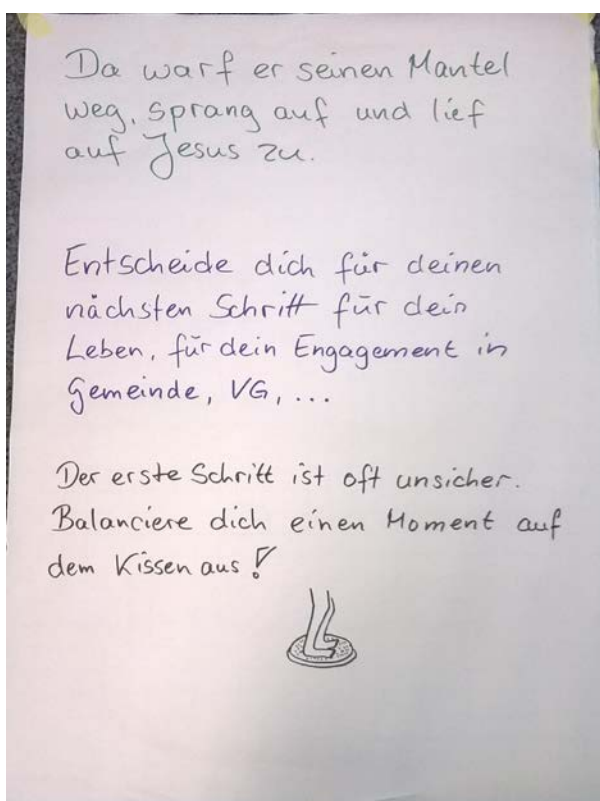 Da warf er seinen Mantel
weg, sprang auf und lief
auf Jesus zu.
Entscheide dich für deinen
nächsten Schritt für dein
Leben, für dein Engagement in
Gemeinde, VG, ...
Der erste Schritt ist oft unsicher.
Balanciere dich einen Moment auf
dem Kissen aus!